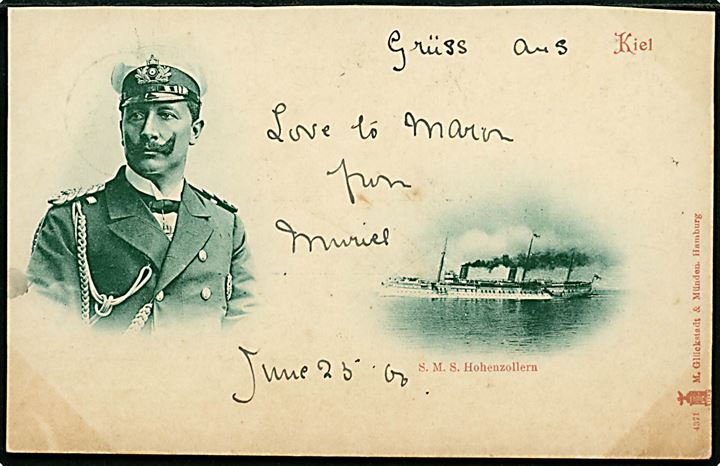 Grüss aus Kiel
Love to Maron
from
Muriel
June 25 00
S. M. S. Hohenzollern
4371 M. Glückstadt & Münden, Hamburg